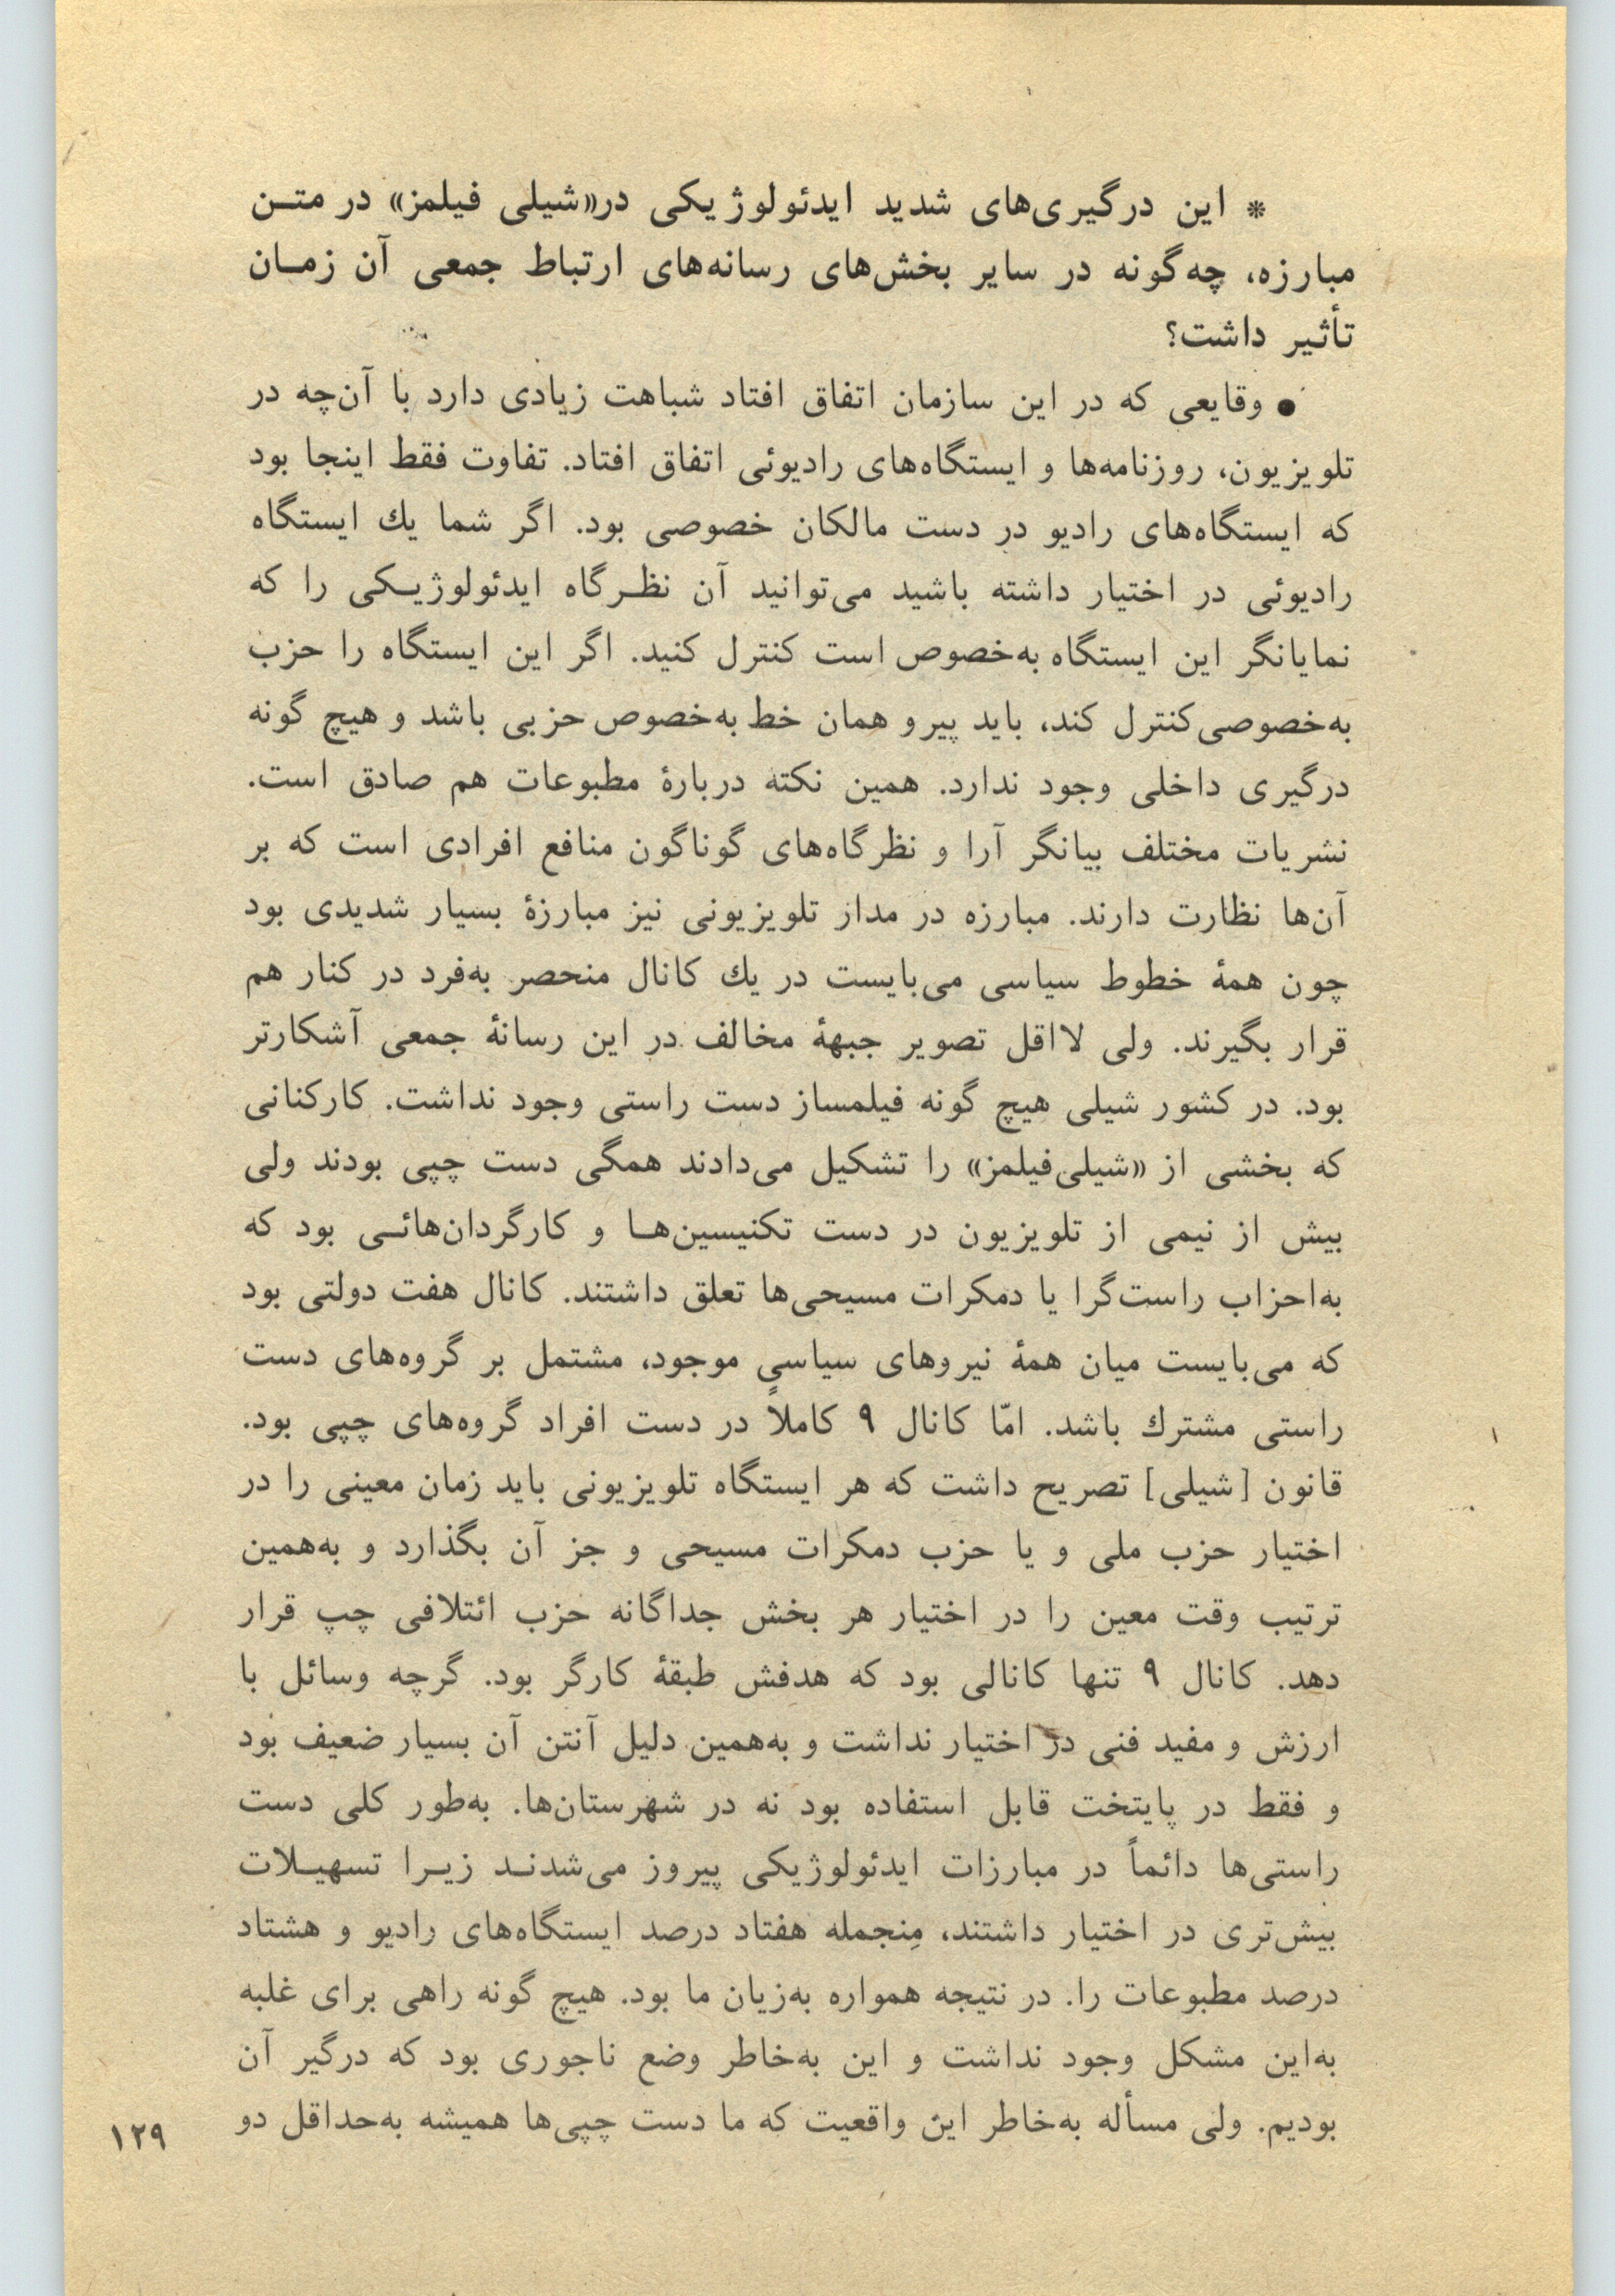 * این درگیری‌های شدید ایدئولوژیکی در«شیلی فیلمز» در متـن
مبارزه، چه‌گونه در سایر بخش‌های رسانه‌های ارتباط جمعی آن زمـان
تأثیر داشت؟
● وقایعی که در این سازمان اتفاق افتاد شباهت زیادی دارد با آن‌چه در
تلویزیون، روزنامه‌ها و ایستگاه‌های رادیوئی اتفاق افتاد. تفاوت فقط اینجا بود
که ایستگاه‌های رادیو در دست مالکان خصوصی بود. اگر شما یك ایستگاه
رادیوئی در اختیار داشته باشید می‌توانید آن نظـرگاه ایدئولوژیـکی را که
نمایانگر این ایستگاه به‌خصوص است کنترل کنید. اگر این ایستگاه را حزب
به‌خصوصی کنترل کند، باید پیرو همان خط به‌خصوص حزبی باشد و هیچ گونه
درگیری داخلی وجود ندارد. همین نکته دربارهٔ مطبوعات هم صادق است.
نشریات مختلف بیانگر آرا و نظرگاه‌های گوناگون منافع افرادی است که بر
آن‌ها نظارت دارند. مبارزه در مدار تلویزیونی نیز مبارزهٔ بسیار شدیدی بود
چون همهٔ خطوط سیاسی می‌بایست در یك کانال منحصر به‌فرد در کنار هم
قرار بگیرند. ولی لااقل تصویر جبههٔ مخالف در این رسانهٔ جمعی آشکارتر
بود. در کشور شیلی هیچ گونه فیلمساز دست راستی وجود نداشت. کارکنانی
که بخشی از «شیلی‌فیلمز» را تشکیل می‌دادند همگی دست چپی بودند ولی
بیش از نیمی از تلویزیون در دست تکنیسین‌هـا و کارگردان‌هائـی بود که
به‌احزاب راست‌گرا یا دمکرات مسیحی‌ها تعلق داشتند. کانال هفت دولتی بود
که می‌بایست میان همهٔ نیروهای سیاسی موجود، مشتمل بر گروه‌های دست
راستی مشترك باشد. امّا کانال ۹ کاملاً در دست افراد گروه‌های چپی بود.
قانون [شیلی] تصریح داشت که هر ایستگاه تلویزیونی باید زمان معینی را در
اختیار حزب ملی و یا حزب دمکرات مسیحی و جز آن بگذارد و به‌همین
ترتیب وقت معین را در اختیار هر بخش جداگانه حزب ائتلافی چپ قرار
دهد. کانال ۹ تنها کانالی بود که هدفش طبقهٔ کارگر بود. گرچه وسائل با
ارزش و مفید فنی در اختیار نداشت و به‌همین دلیل آنتن آن بسیار ضعیف بود
و فقط در پایتخت قابل استفاده بود نه در شهرستان‌ها. به‌طور کلی دست
راستی‌ها دائماً در مبارزات ایدئولوژیکی پیروز می‌شدنـد زیـرا تسهیـلات
بیش‌تری در اختیار داشتند، مِنجمله هفتاد درصد ایستگاه‌های رادیو و هشتاد
درصد مطبوعات را. در نتیجه همواره به‌زیان ما بود. هیچ گونه راهی برای غلبه
به‌این مشکل وجود نداشت و این به‌خاطر وضع ناجوری بود که درگیر آن
بودیم. ولی مسأله به‌خاطر این واقعیت که ما دست چپی‌ها همیشه به‌حداقل دو
۱۲۹